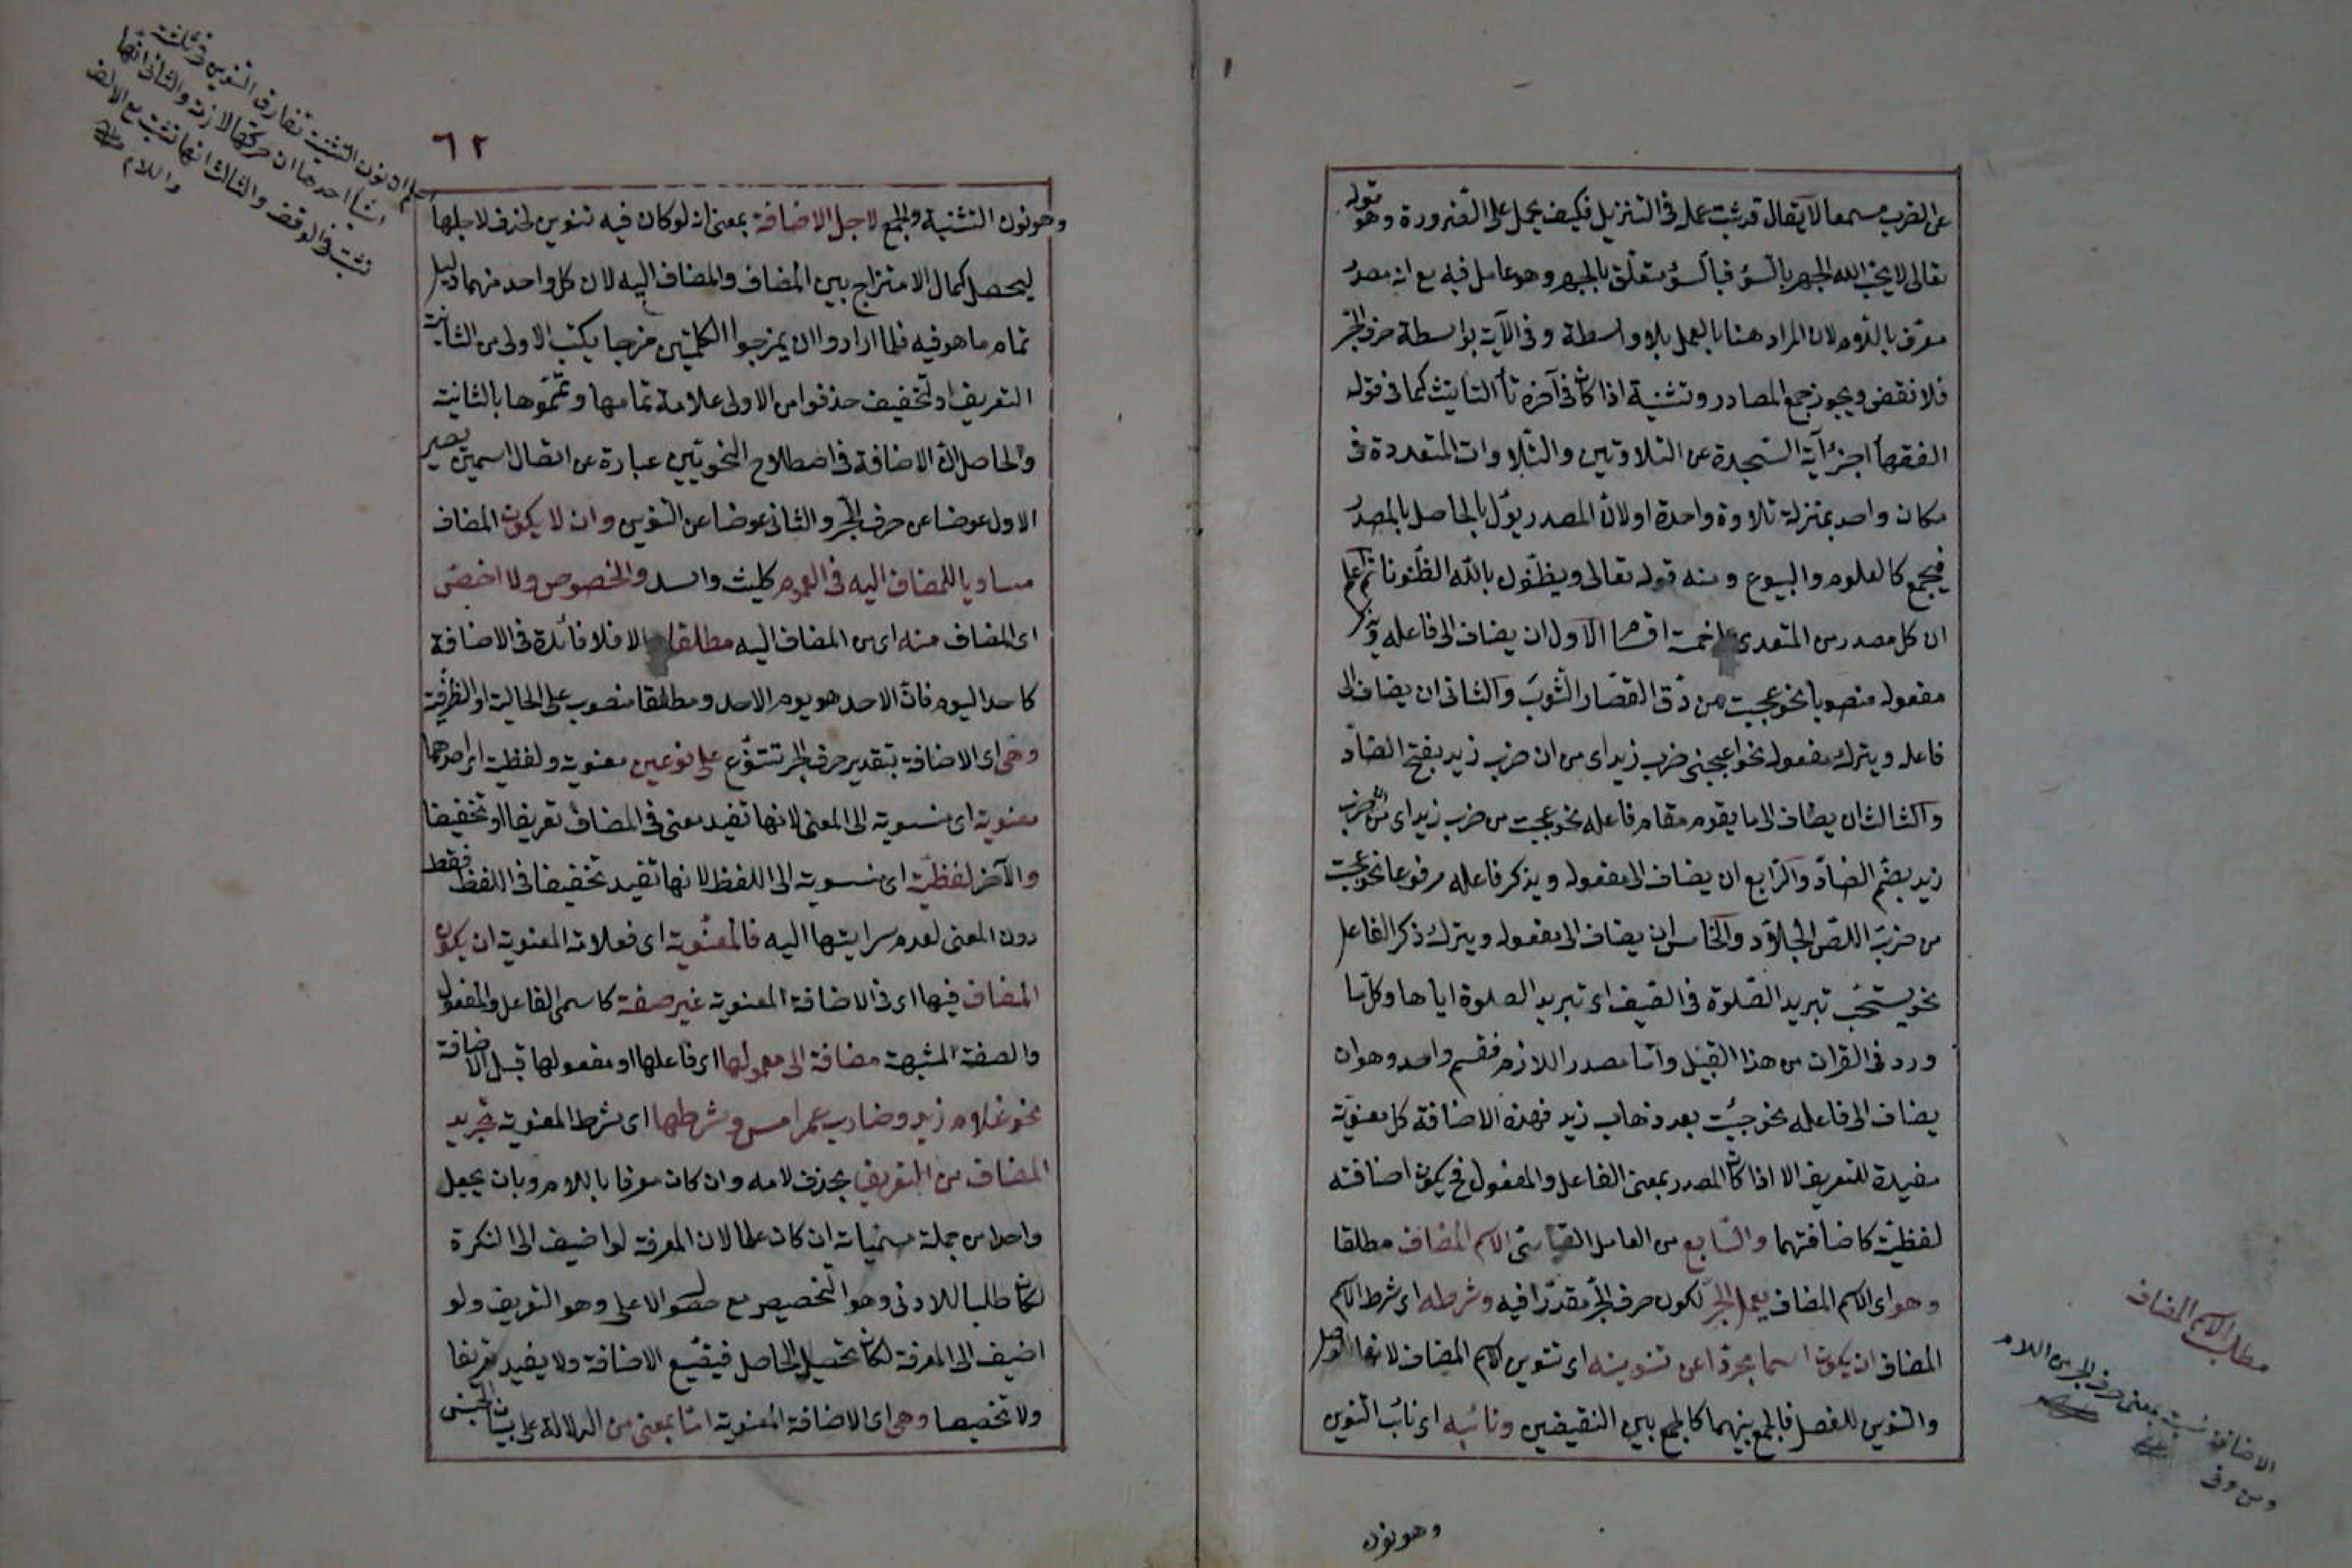 على الضرب مسمعا لا يقال قد ثبت عمله في التنزيل فكيف يحمل على الضرورة وهو قوله
تعالى لا يحب الله الجهر بالسوء فبالسوء متعلق بالجهر وهو عامل فيه مع انه مصدر
معرف باللام لان المراد هنا بالعمل بلا واسطة وفي الآية بواسطة حرف الجر
فلا نقض ويجوز جمع المصادر وتثنية اذا كان في آخره تاء التأنيث كما في قوله
الفقهاء اجزأ آية السجدة عن التلاوتين والتلاوات المتعددة في
مكان واحد بمنزلة تلاوة واحدة او لان المصدر يؤل بالحاصل بالمصدر
فيجمع كالعلوم والبيوع ومنه قوله تعالى ويظنون بالله الظنونا ثم اعلم
ان كل مصدر من المتعدي خمسة اقسام الاول ان يضاف الى فاعله ويذكر
مفعوله منصوبا نحو عجبت من دق القصار الثوب والثاني ان يضاف الى
فاعله ويترك مفعوله نحو اعجبني ضرب زيد اي من ان ضرب زيد بفتح الضاد
والثالث ان يضاف الى ما يقوم مقام فاعله نحو عجبت من ضرب زيد اي من ان ضرب
زيد بضم الضاد والرابع ان يضاف الى مفعوله ويذكر فاعله مرفوعا نحو عجبت
من ضرب اللص الجلاد والخامس ان يضاف الى مفعوله ويترك ذكر الفاعل
نحو يستحب تبريد الصلوة في الصيف اي تبريد الصلوة اياها وكل ما
ورد في القرآن من هذا القبيل واما مصدر اللازم فقسم واحد وهو ان
يضاف الى فاعله نحو جيئت بعد ذهاب زيد فهذه الاضافة كل معنوية
مفيدة للتعريف الا اذا كان المصدر بمعنى الفاعل والمفعول فح يكون اضافته
لفظية كاضافتهما والسابع من العامل القياسي الاسم المضاف مطلقا
وهو اي الاسم المضاف يعمل الجر لكون حرف الجر مقدرا فيه وشرطه اي شرط الاسم
المضاف ان يكون اسما مجردا عن تنوينه اي تنوين الاسم المضاف لانها للوصل
والتنوين للفصل فالجمع بينهما كالجمع بين النقيضين ونائبه اي نائب التنوين
وهو نون
مطلب الاسم المضاف
الاضافة بمعنى حرف الجر من اللام
ومن وفي
٦٢
وهو نون التثنية والجمع لاجل الاضافة بمعنى انه لو كان فيه تنوين لحذف لاجلها
ليحصل كمال الامتزاج بين المضاف والمضاف اليه لان كل واحد منهما دليل
تمام ما هو فيه فلما ارادوا ان يمزجوا الكلمتين مزجا يكتب الاولى من الثانية
التعريف او التخفيف حذفوا من الاولى علامة تمامها وتمموها بالثانية
والحاصل ان الاضافة في اصطلاح النحويين عبارة عن اتصال اسمين يصير
الاول عوضا عن حرف الجر والثاني عوضا عن التنوين وان لا يكون المضاف
مساويا للمضاف اليه في العموم كليث واسد والخصوص ولا اخص
اي المضاف منه اي من المضاف اليه مطلقا والا فلا فائدة في الاضافة
كاحد اليوم فان الاحد هو يوم الاحد ومطلقا منصوب على الحالية او الظرفية
وهي اي الاضافة بتقدير حرف الجر تتنوع على نوعين معنوية ولفظية احدهما
معنوية اي منسوبة الى المعنى لانها تفيد معنى في المضاف تعريفا او تخفيفا
والآخر لفظية اي منسوبة الى اللفظ لانها تفيد تخفيفا في اللفظ فقط
دون المعنى لعدم سرايتها اليه فالمعنوية اي فعلامة المعنوية ان يكون
المضاف فيها اي في الاضافة المعنوية غير صفة كاسم الفاعل والمفعول
والصفة المشبهة مضافة الى معمولها اي فاعلها او مفعولها قبل الاضافة
نحو غلام زيد وضارب عمر امس وشرطها اي شرط المعنوية تجريد
المضاف من التعريف بحذف لامه وان كان معرفا باللام وبان يجعل
واحدا من جملة مسميات ان كان علما لان المعرفة لو اضيف الى النكرة
لكان طلبا للادنى وهو التخصيص مع حصول الاعلى وهو التعريف ولو
اضيف الى المعرفة لكان تحصيل الحاصل فيضيع الاضافة ولا يفيد تعريفا
ولا تخصيصا وهي اي الاضافة المعنوية اما بمعنى من الدلالة على بيان الجنس
اعلم ان نون التثنية تفارق التنوين في ثلثة
اشياء احدها ان حركتها لازمة والثاني انها
تثبت في الوقف والثالث انها تثبت مع الالف
واللام